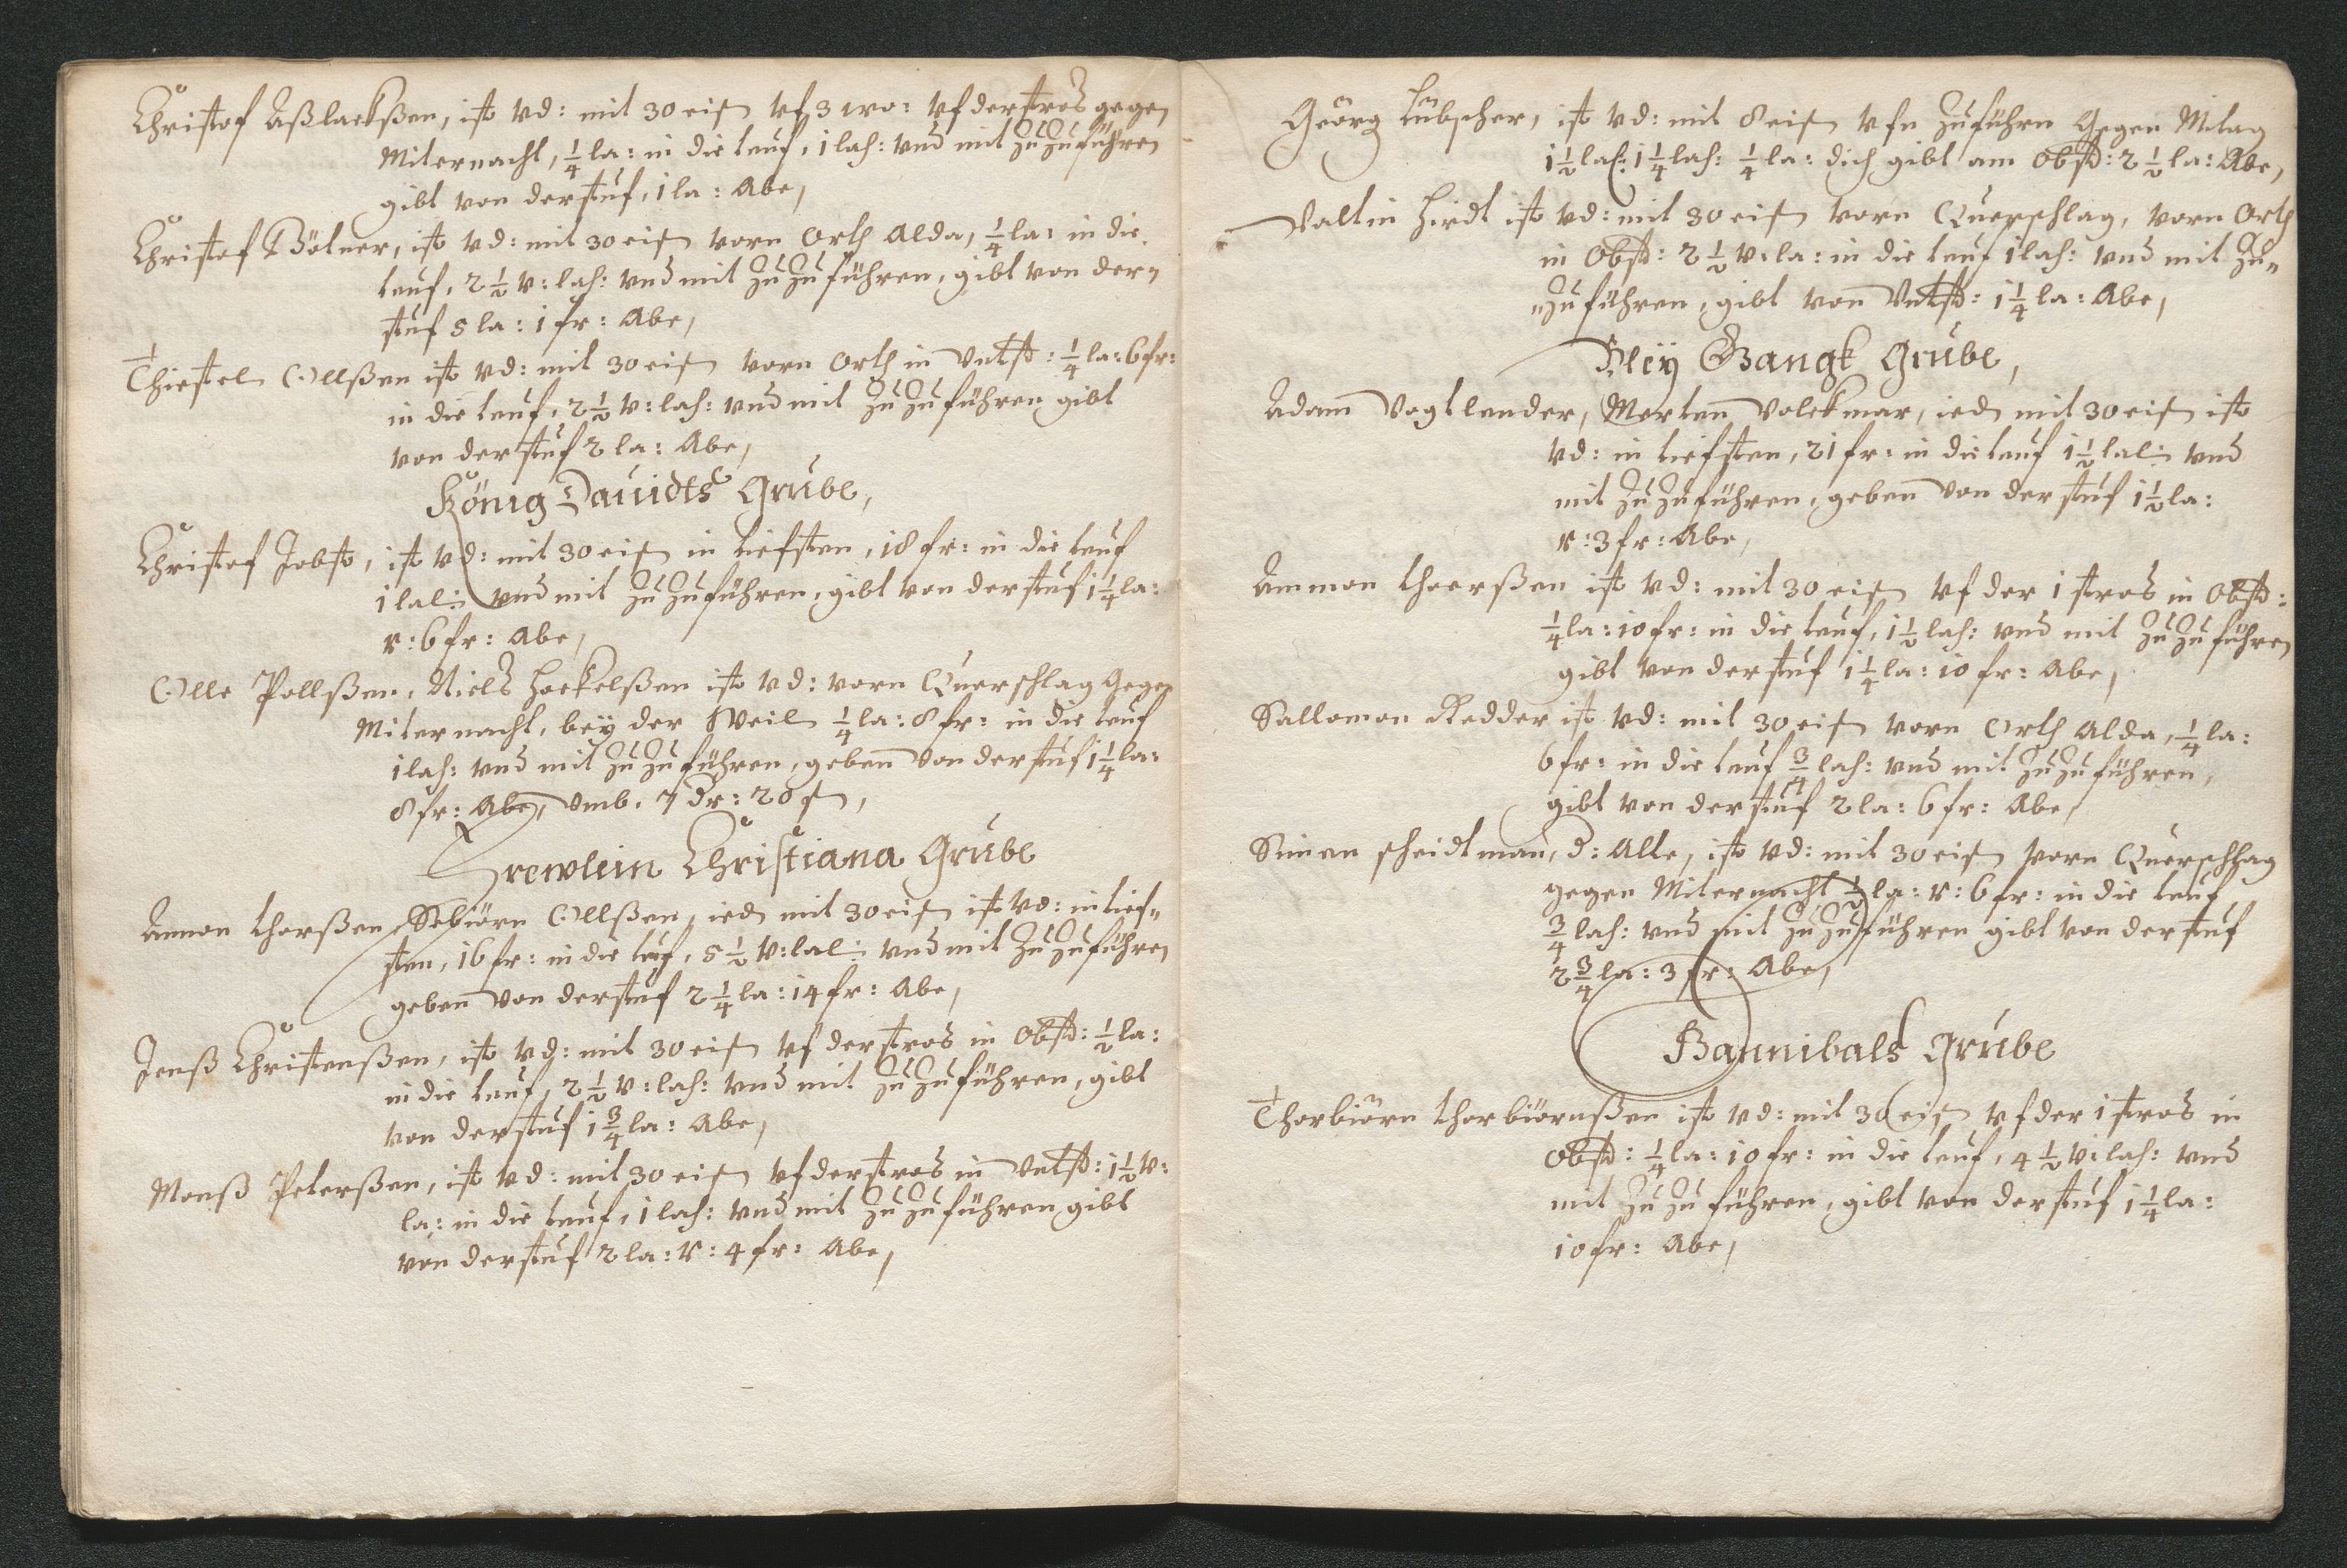 Christof Aßlackßen, ist vd: mit 30 eisn vf 3 wo: vf der stros gegen
Miternacht, 1/4 la: in die teuf, 1 lach: vnd mit Zu Zuführen
gibt von der stuf, 1 la: Abe,
Christof Bötner, ist vd: mit 30 eisn vorn Orth Alda, 1/4 la: in die
teuf, 2 1/2 v: lach: vnd mit Zu Zu führen, gibt von der=
stuf 5 la: 1 fr: Abe,
Thiestel Ollßen ist vd: mit 30 eisn vorn Orth in Vntst: 1/4 la: 6 fr:
in die teuf, 2 1/2 v: lach: vnd mit Zu Zu führen gibt
von der stuf 2 la: Abe,
König Dauidts Grube,
Christof Jobst, ist vd: mit 30 eisn in tiefsten, 18 fr: in die teuf
1 lal: vnd mit Zu Zu führen, gibt von der stuf 1 1/4 la:
v: 6 fr: Abe,
Olle Pollßen, Niels Hockelßen ist vd: vorn Querschlag Gegen
Miternacht, bey der Weil 1/4 la: 8 fr: in die teuf
1 lach: vnd mit Zu Zu führen, geben von der stuf 1 1/4 la:
8 fr: Abe, vmb. 7 dr: 20 s,
Frewlein Christiana Grube
Ammon thorßen, Sebiörn Ollßen, ied mit 30 eisn ist vd: in tief=
sten, 16 fr: in die teuf, 5 1/2 v: lal: vnd mit Zu Zu führen
geben von der stuf 2 1/4 la: 14 fr: Abe,
Jenß Christenßen, ist vd: mit 30 eisn vf der stros in Obst: 1/2 la:
in die teuf, 2 1/2 v: lach: vnd mit Zu Zu führen, gibt
von der stuf 1 3/4 la: Abe,
Monß Peterßen, ist vd: mit 30 eisn vf der stros in Vntst: 1 1/2 v:
la: in die teuf, 1 lach: vnd mit Zu Zu führen gibt
von der stuf 2 la: v: 4 fr: Abe,
Geörg Lübscher, ist vd: mit 8 eisn vfn Zuführn Gegen Mitag
1 1/2 lach: 1 1/4 lach: 1/4 la: dich gibt am Obst: 2 1/2 la: Abe,
Valtin Hirdt ist vd: mit 30 eisn vorn Querschlag, vorn Orth
in Obst: 2 1/2 v: la: in die teuf 1 lach: vnd mit Zu=
=Zu führen, gibt von Vntst: 1 1/4 la: Abe,
Bley Gangk Grube,
Adam Vogtlender, Merten Volckmar, ied mit 30 eisn ist
vd: in tiefsten, 21 fr: in die teuf 1 1/2 lal: vnd
mit Zu Zu führen, geben von der stuf 1 1/2 la:
v: 3 fr: Abe,
Ammon thorrßen ist vd: mit 30 eisn vf der 1 stros in Obst:
1/4 la: 10 fr: in die teuf, 1 1/2 lach: vnd mit Zu Zu führen
gibt von der stuf 1 1/4 la: 10 fr: Abe,
Sallomon Redder ist vd: mit 30 eisn vorn Orth Alda, 1/4 la:
6 fr: in die teuf 3/4 lach: vnd mit Zu Zu führen,
gibt von der stuf 2 la: 6 fr: Abe,
Simen scheidtman, d: Alte, ist vd: mit 30 eisn vorn Querschlag
gegen Miternacht 1/2 la: v: 6 fr: in die teuf
3/4 lach: vnd mit Zu Zu führen gibt von der stuf
2 3/4 la: 3 fr: Abe,
Hannibals Grube
Thorbiörn thorbiörnßen ist vd: mit 30 eisn vf der 1 stros in
Obst: 1/4 la: 10 fr: in die teuf, 4 1/2 v: lach: vnd
mit Zu Zu führen, gibt von der stuf 1 1/4 la:
10 fr: Abe,